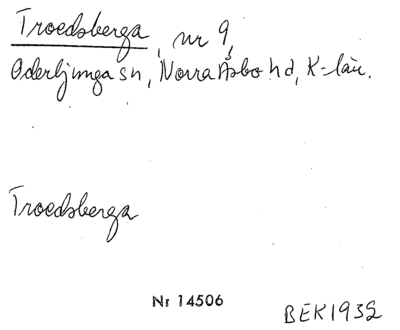 Troedsberga, nr 9,
Oderljunga sn, Norra Åsbo hd, K-län.
Troedsberga
Nr 14506
BEK 1932